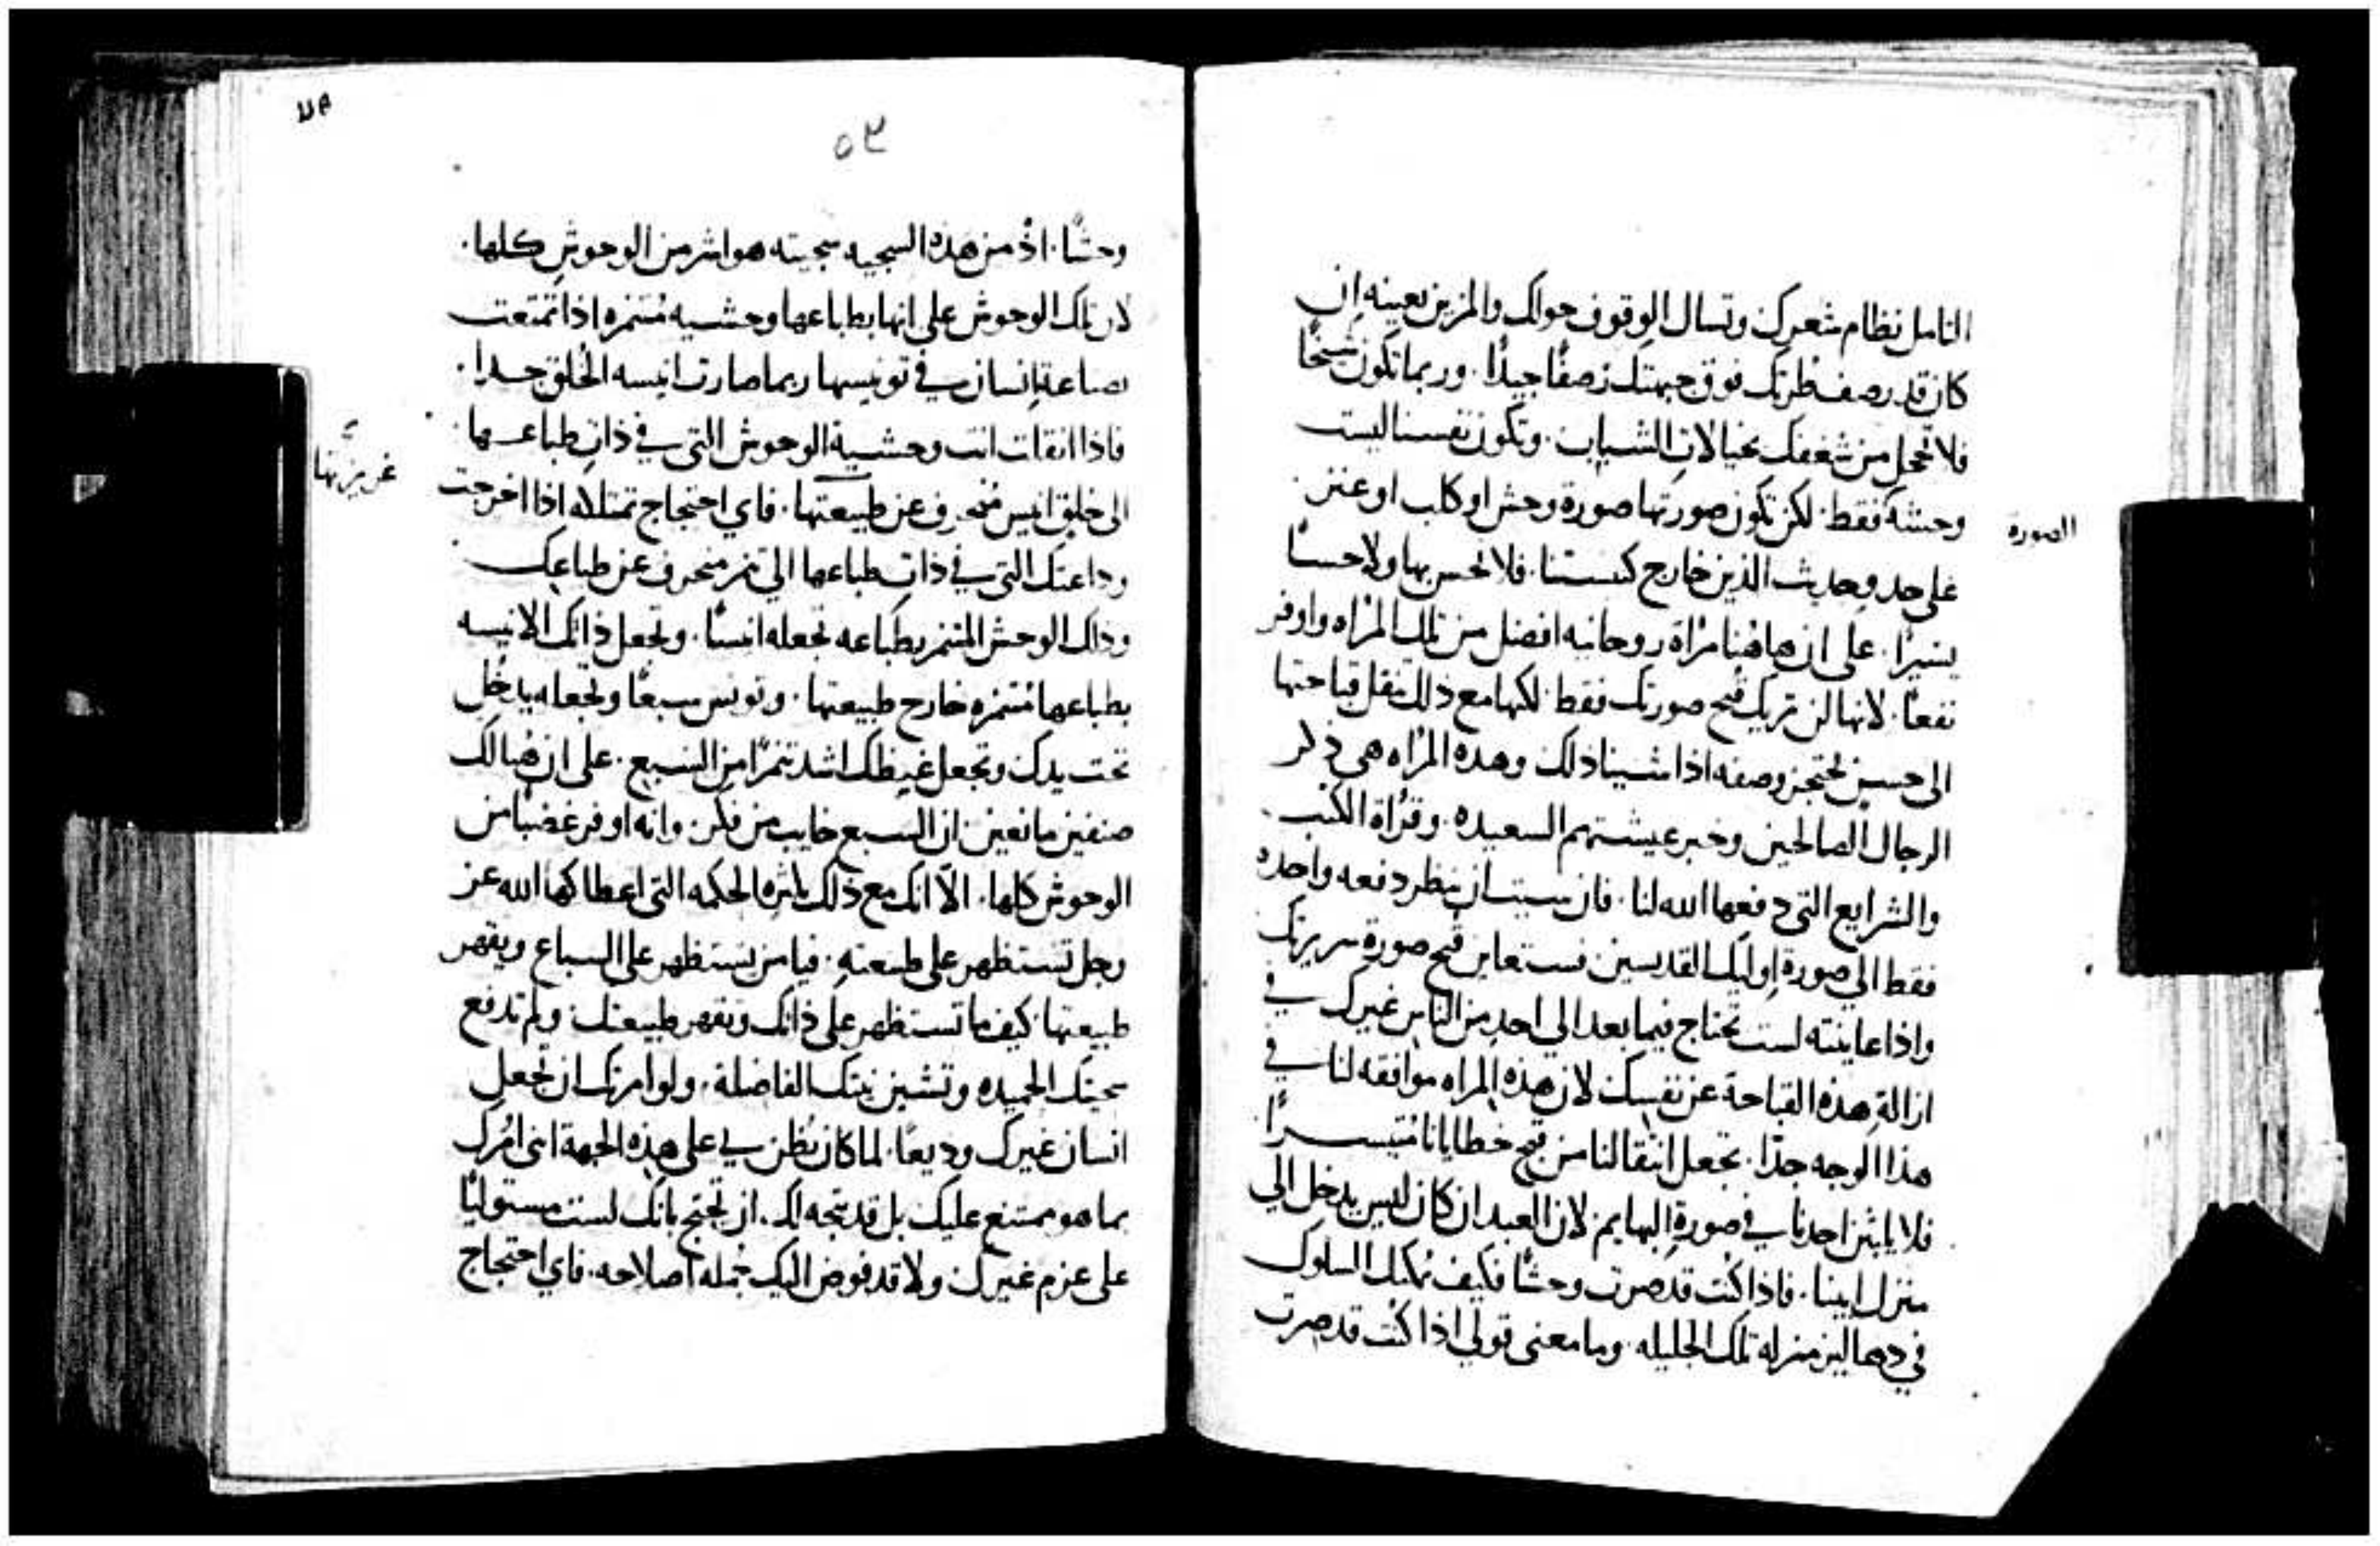 التامل نظام شعرك وتسال الوقوف حولك والمزين بعينه ان
كان قد رصف طرتك فوق جبهتك رصفًا جيدًا. وربما تكون شيخًا
فلا تخجل من شغفك بخيالات الشباب. وتكون نفسنا ليست
وحشه فقط. لكن تكون صورتها صورة وحش او كلب او عنز.
الصورة
على حد وحديث الذين خارج كنيستنا. فلا نحس بها ولا حسًا
يسيرًا. على ان هاهنا مراة روحانيه افضل من تلك المراه واوفر
نفعًا. لانها لن تريك قبح صورتك فقط. لكنها مع ذلك تنقل قباحتها
الى حسن وصفه اذا شينا ذلك وهذه المراه هي ذكر
الرجال الصالحين وخبر عيشتهم السعيده. وقراة الكتب
والشرايع التي دفعها الله لنا. فان شيت ان تنظر دفعه واحده
فقط الي صورة اوليك القديسين فستعاين قبح صورة سريرتك
واذا عاينته لست تحتاج فيما بعد الي احد من الناس غيرك في
ازالة هذه القباحة عن نفسك لان هذه المراه موافقه لنا في
هذا الوجه جدًا. تجعل انتقالنا من قبح خطايانا متيسرًا
فلا يلبثن احدنا في صورة البهايم لان العبد ان كان ليس يدخل الي
منزل ابينا. فاذا كنت قد صرت وحشًا فكيف يمكنك السلوك
في دهاليز منزله تلك الجليله. وما معنى قولي اذا كنت قد صرت
٥٣
وحشًا. اذ من هذه السجيه سجيته هو اشر من الوحوش كلها.
لان تلك الوحوش على انها بطباعها وحشيه متنمره اذا تمتعت
بصناعة انسان في تونيسها ربما صارت انيسه الخلق جدا.
فاذا انقلت انت وحشية الوحوش التي في ذات طباعها
الى خلق انيس منحرف عن طبيعتها. فاي احتجاج تمتلكه اذا اخرجت
غريزتها
وداعتك التي في ذات طباعها الي تنمر منحرف عن طباعك
وذلك الوحش المتنمر بطباعه تجعله انسًا. وتجعل ذاتك الانيسه
بطباعها متنمره خارج طبيعتها. وتونس سبعًا وتجعله يدخل
تحت يدك وتجعل غيظك اشد تنمرًا من السبع. على ان هنالك
صنفين مانعين ان السبع خايب من فكر. وانه اوفر غضبًا من
الوحوش كلها. الا انك مع ذلك بكثرة الحكمه التي اعطاكها الله عز
وجل تستظهر على طبيعته. فيا من يستظهر على السباع ويقهر
طبيعتها كيف ما تستظهر على ذاتك وتقهر طبيعتك ولم تدفع
سجيتك الحميده وتشين نيتك الفاضلة. ولو امرتك ان تجعل
انسان غيرك وديعًا. لما كان يُظن بي على هذه الجهة انى امرك
بما هو ممتنع عليك بل قد يتجه لك. ان تحتج بانك لست مستوليًا
على عزم غيرك ولا قد فوض اليك جمله اصلاحه. فاي احتجاج